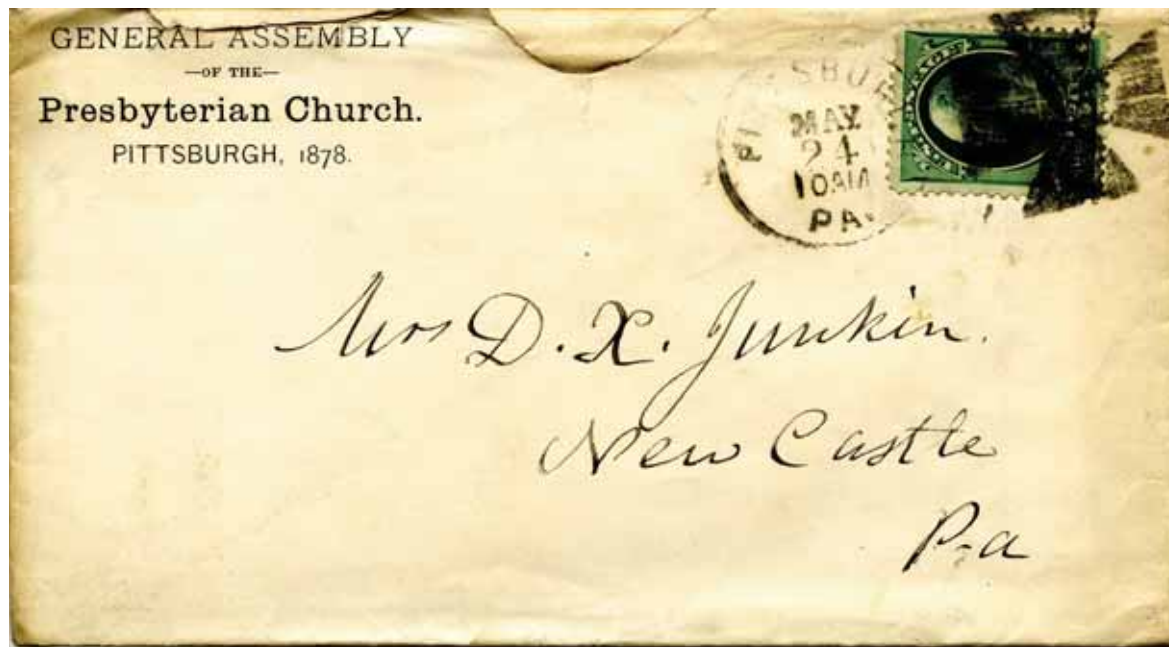 GENERAL ASSEMBLY
—OF THE—
Presbyterian Church.
PITTSBURGH, 1878.
MAY
24
10AM
PA.
Mrs D. X. Junkin.
New Castle
Pa